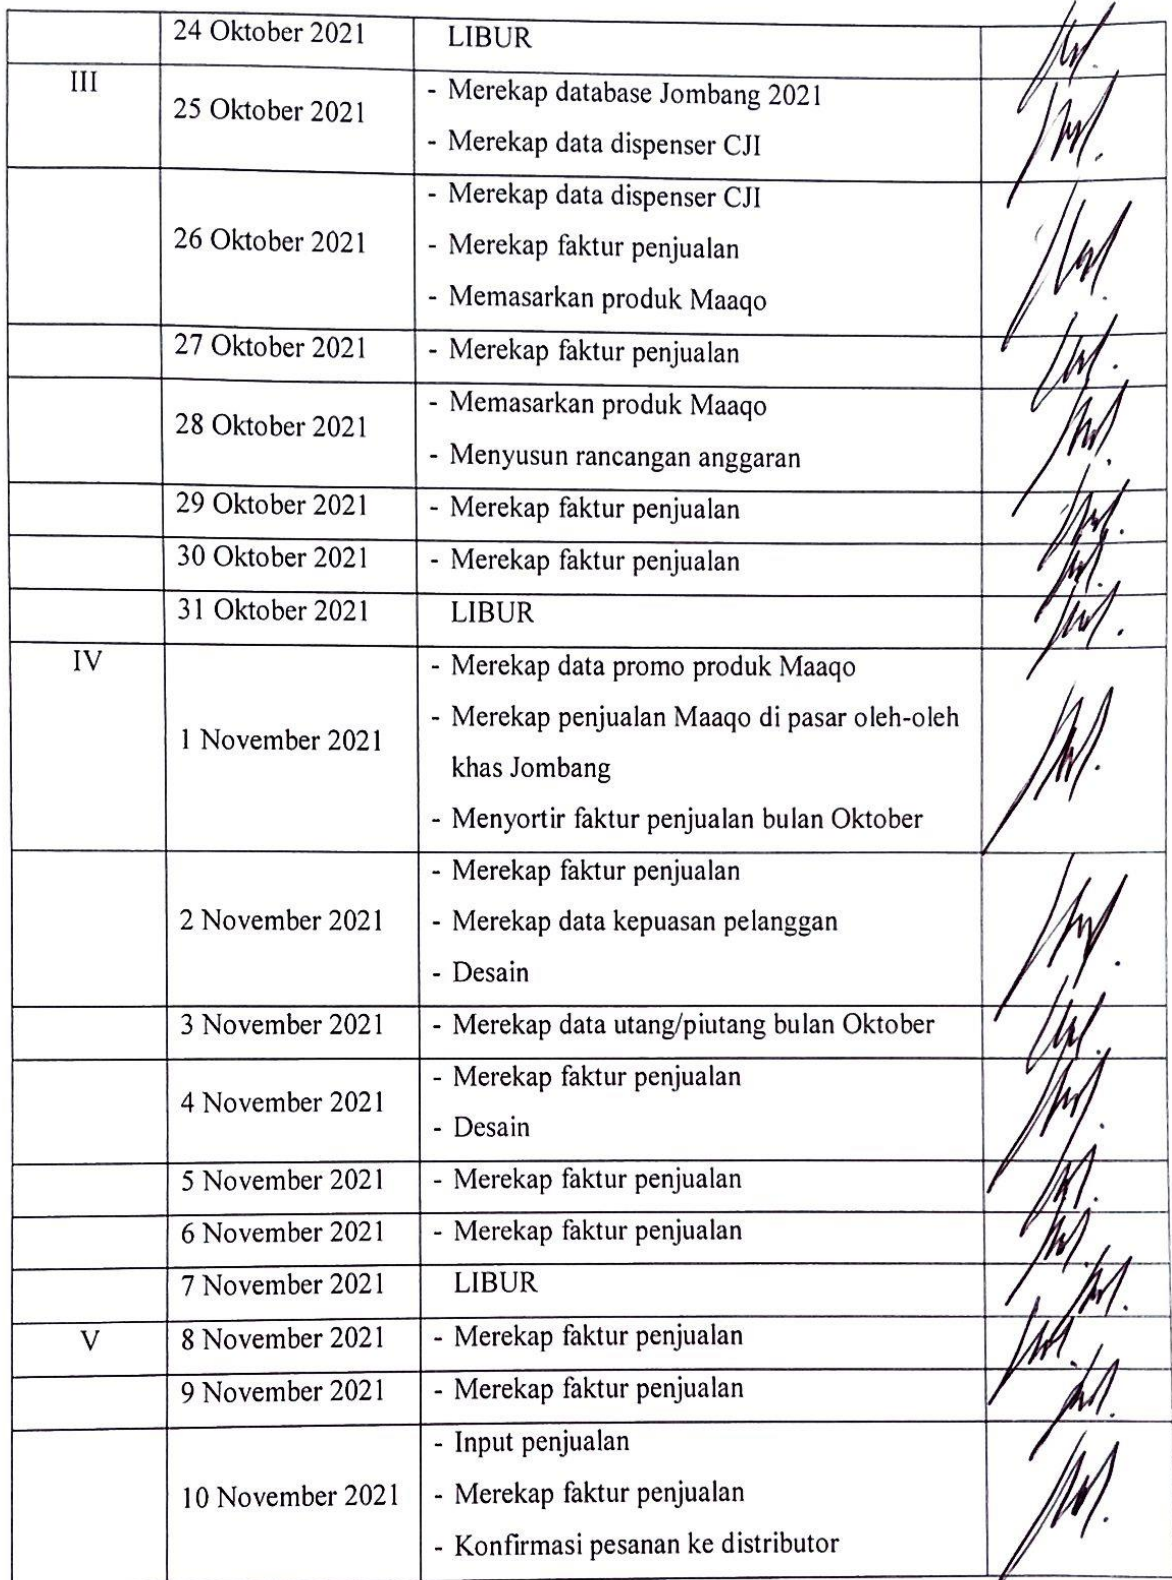 24 Oktober 2021 LIBUR
III
25 Oktober 2021
- Merekap database Jombang 2021
- Merekap data dispenser CJI
26 Oktober 2021
- Merekap data dispenser CJI
- Merekap faktur penjualan
- Memasarkan produk Maaqo
27 Oktober 2021 - Merekap faktur penjualan
28 Oktober 2021
- Memasarkan produk Maaqo
- Menyusun rancangan anggaran
29 Oktober 2021 - Merekap faktur penjualan
30 Oktober 2021 - Merekap faktur penjualan
31 Oktober 2021 LIBUR
IV
1 November 2021
- Merekap data promo produk Maaqo
- Merekap penjualan Maaqo di pasar oleh-oleh
khas Jombang
- Menyortir faktur penjualan bulan Oktober
2 November 2021
- Merekap faktur penjualan
- Merekap data kepuasan pelanggan
- Desain
3 November 2021 - Merekap data utang/piutang bulan Oktober
4 November 2021
- Merekap faktur penjualan
- Desain
5 November 2021 - Merekap faktur penjualan
6 November 2021 - Merekap faktur penjualan
7 November 2021 LIBUR
V 8 November 2021 - Merekap faktur penjualan
9 November 2021 - Merekap faktur penjualan
10 November 2021
- Input penjualan
- Merekap faktur penjualan
- Konfirmasi pesanan ke distributor